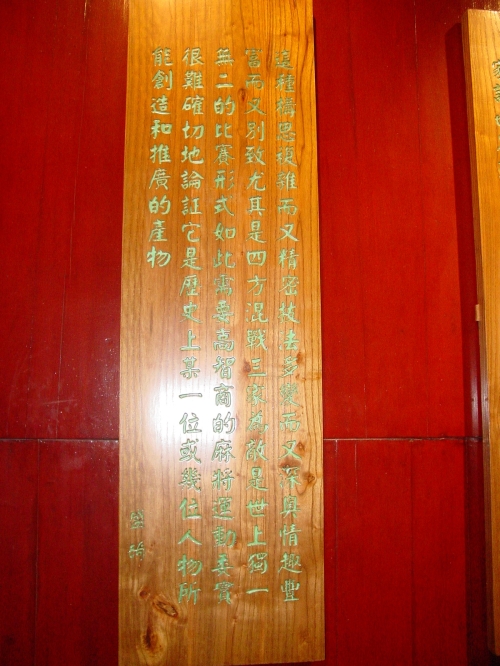 這種構思複雜而又精密技法多變而又深奧情趣豐
富而又別致尤其是四方混戰三家為敵是世上獨一
無二的比賽形式如此需要高智商的麻將運動委實
很難確切地論証它是歷史上某一位或幾位人物所
能創造和推廣的產物